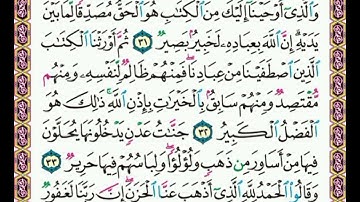 وَٱلَّذِىٓ أَوْحَيْنَآ إِلَيْكَ مِنَ ٱلْكِتَٰبِ هُوَ ٱلْحَقُّ مُصَدِّقًا لِّمَا بَيْنَ
يَدَيْهِ إِنَّ ٱللَّهَ بِعِبَادِهِۦ لَخَبِيرٌۢ بَصِيرٌ ٣١ ثُمَّ أَوْرَثْنَا ٱلْكِتَٰبَ
ٱلَّذِينَ ٱصْطَفَيْنَا مِنْ عِبَادِنَا فَمِنْهُمْ ظَالِمٌ لِّنَفْسِهِۦ وَمِنْهُم
مُّقْتَصِدٌ وَمِنْهُمْ سَابِقٌۢ بِٱلْخَيْرَٰتِ بِإِذْنِ ٱللَّهِ ذَٰلِكَ هُوَ
ٱلْفَضْلُ ٱلْكَبِيرُ ٣٢ جَنَّٰتُ عَدْنٍ يَدْخُلُونَهَا يُحَلَّوْنَ
فِيهَا مِنْ أَسَاوِرَ مِن ذَهَبٍ وَلُؤْلُؤًا وَلِبَاسُهُمْ فِيهَا حَرِيرٌ ٣٣
وَقَالُوا۟ ٱلْحَمْدُ لِلَّهِ ٱلَّذِىٓ أَذْهَبَ عَنَّا ٱلْحَزَنَ إِنَّ رَبَّنَا لَغَفُورٌ